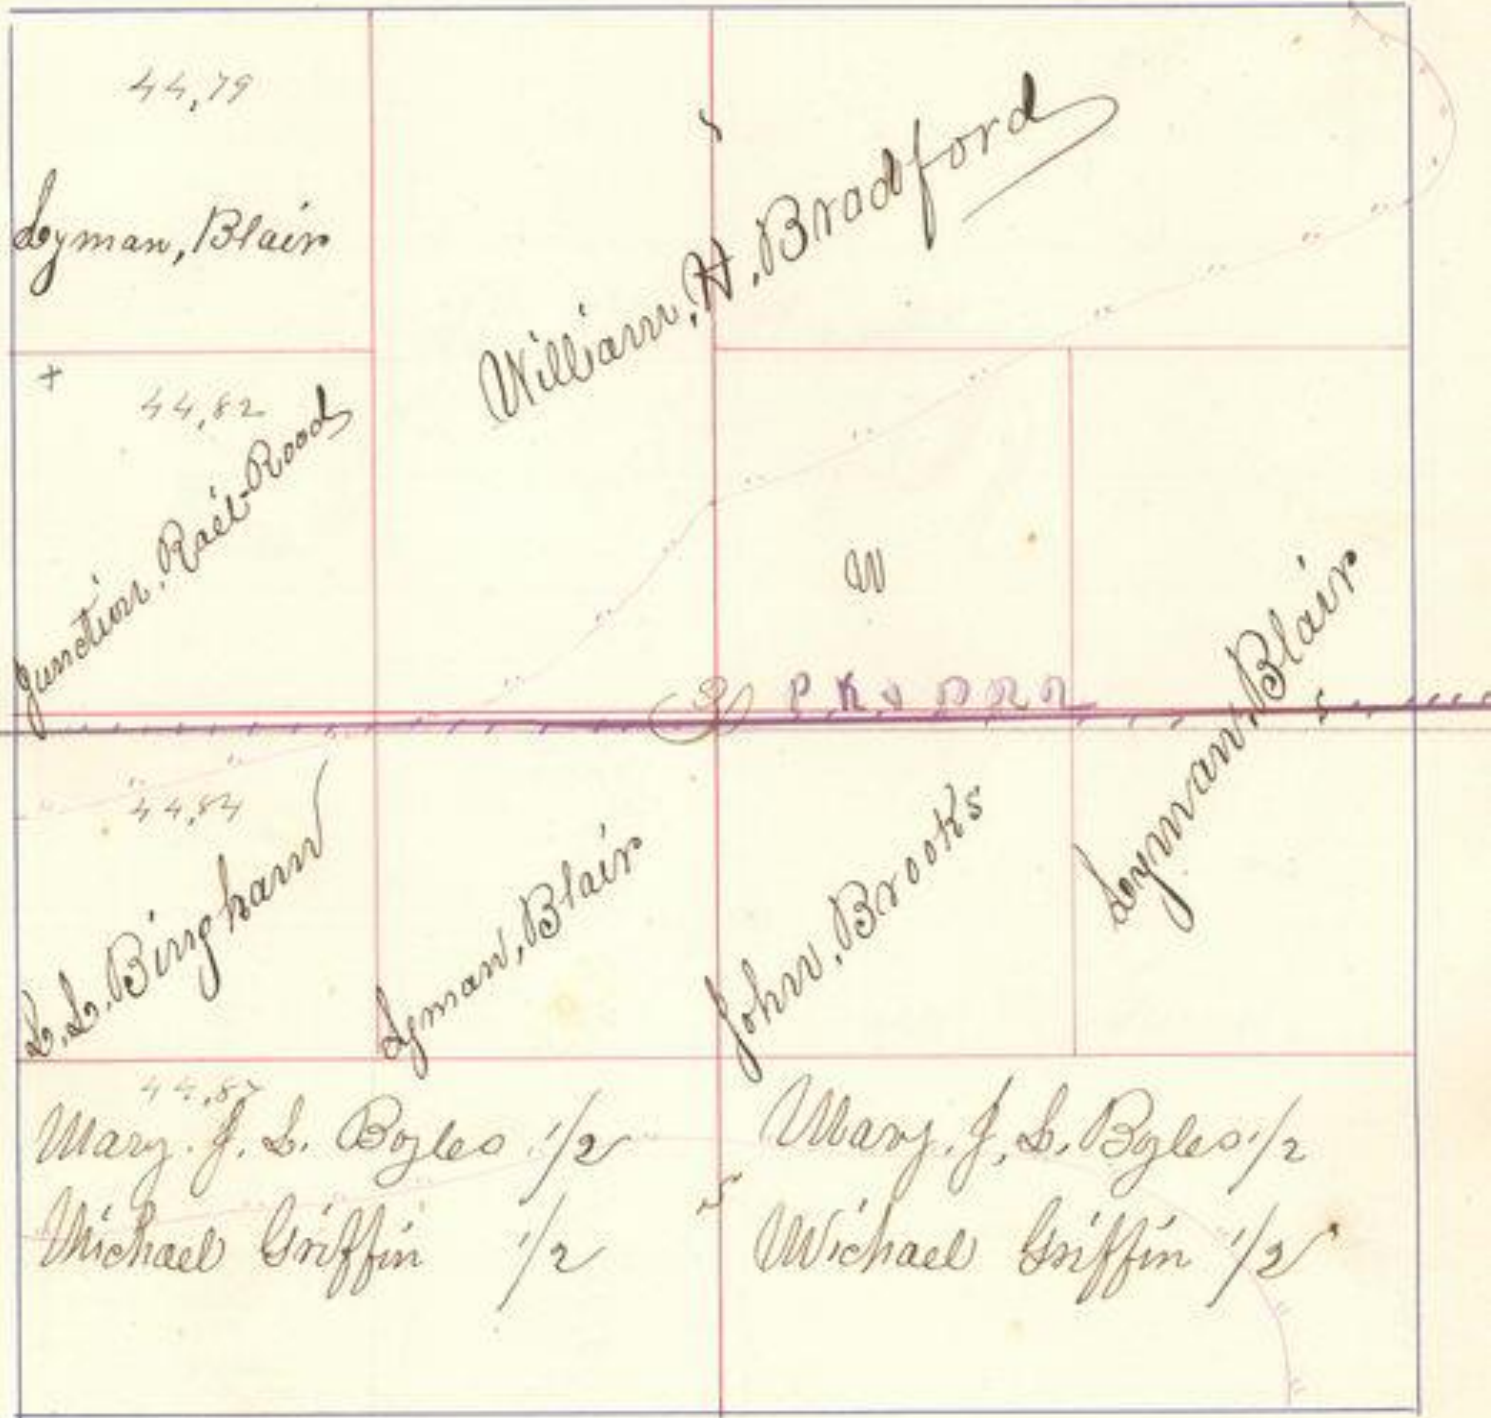 44,79
Lyman, Blair
William, H, Bradford
+
44,82
Junction, Rail-Road
W
P. K.
44,84
L. L. Bingham
Lyman, Blair
John, Brooks
Lyman, Blair
44,87
Mary. J. L. Boyles 1/2
Michael Griffin 1/2
Mary. J, L, Boyles 1/2
Michael Griffin 1/2